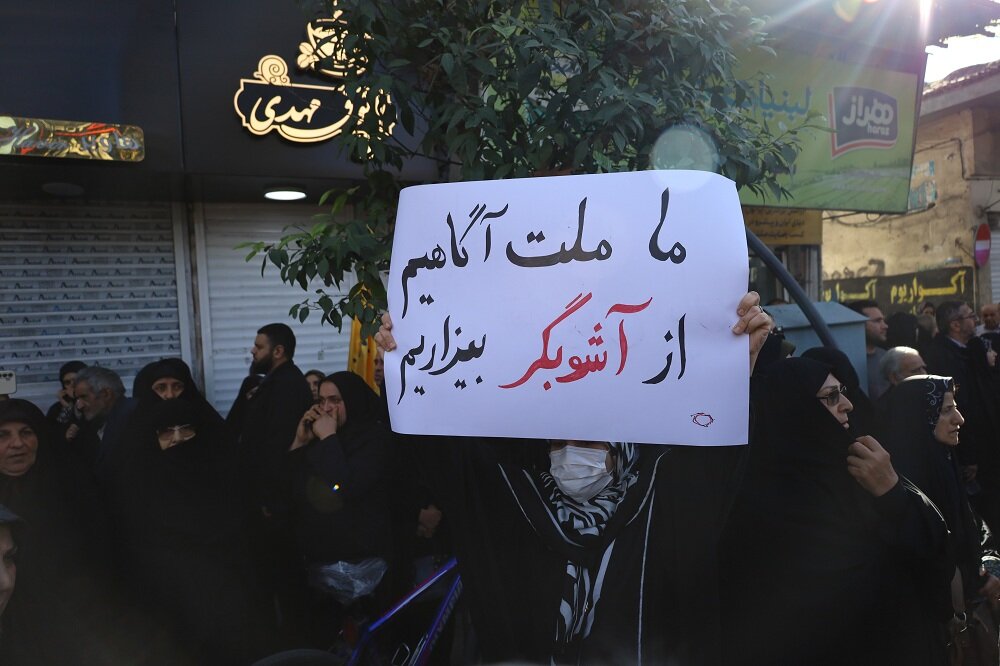 ما ملت آگاهیم
از آشوبگر بیزاریم
مهدی
هراز
haraz
لبنیات
آکواریوم